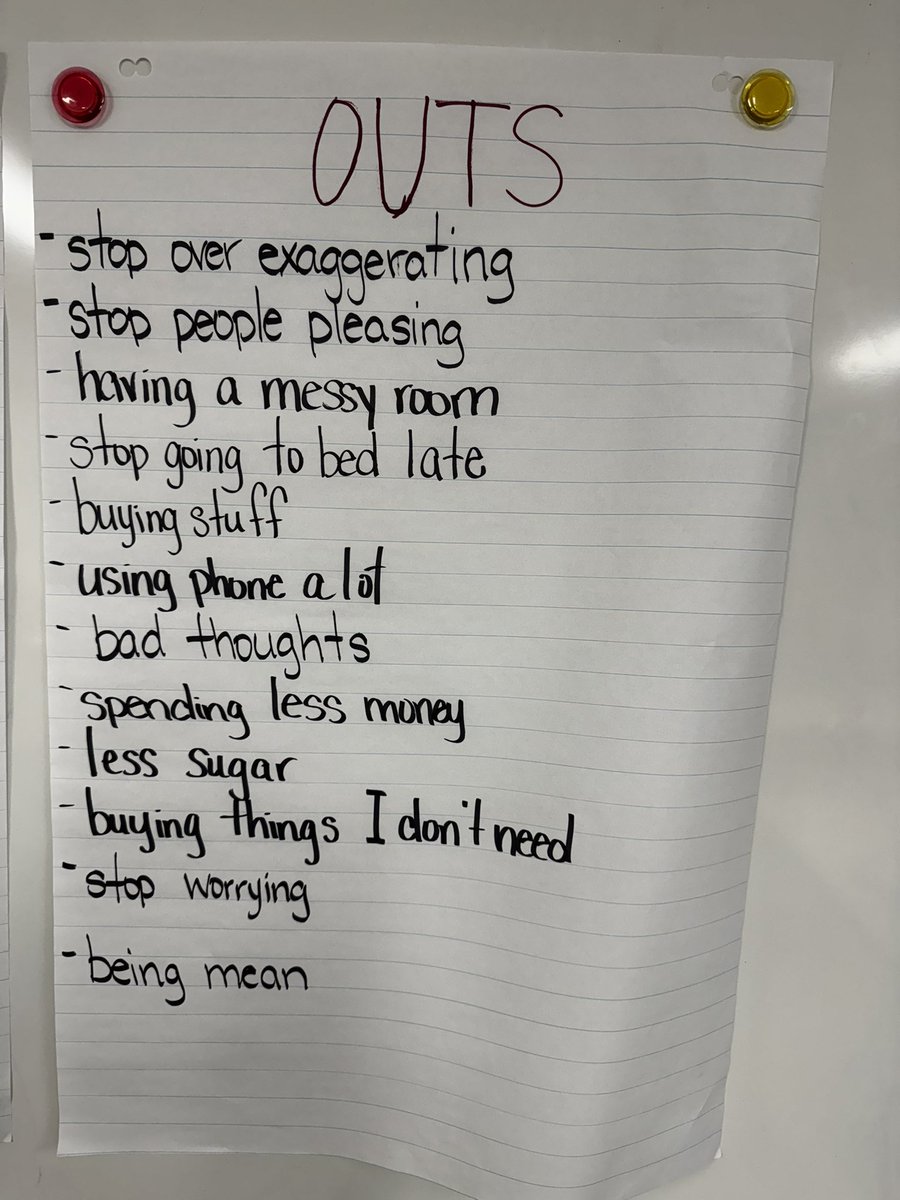 OUTS
- stop over exaggerating
- stop people pleasing
- having a messy room
- stop going to bed late
- buying stuff
- using phone a lot
- bad thoughts
- spending less money
- less sugar
- buying things I don't need
- stop worrying
- being mean